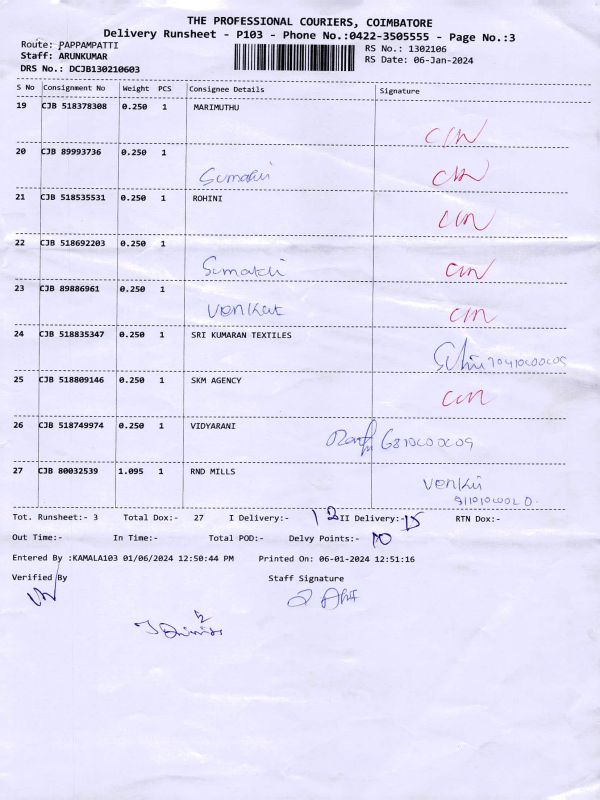 THE PROFESSIONAL COURIERS, COIMBATORE
Delivery Runsheet - P103 - Phone No.:0422-3505555 - Page No.:3
Route: PAPPAMPATTI RS No.: 1302106
Staff: ARUNKUMAR RS Date: 06-Jan-2024
DRS No.: DCJB130210603
S No Consignment No Weight PCS Consignee Details Signature
19 CJB 518378308 0.250 1 MARIMUTHU
20 CJB 89993736 0.250 1
Sumathi
21 CJB 518535531 0.250 1 ROHINI
22 CJB 518692203 0.250 1
Sumathi
23 CJB 89886961 0.250 1
Venkat
24 CJB 518835347 0.250 1 SRI KUMARAN TEXTILES
25 CJB 518809146 0.250 1 SKM AGENCY
26 CJB 518749974 0.250 1 VIDYARANI
27 CJB 80032539 1.095 1 RND MILLS
Tot. Runsheet:- 3 Total Dox:- 27 I Delivery:- 12 II Delivery:- 15 RTN Dox:-
Out Time:- In Time:- Total POD:- Delvy Points:- 10
Entered By :KAMALA103 01/06/2024 12:50:44 PM Printed On: 06-01-2024 12:51:16
Verified By Staff Signature